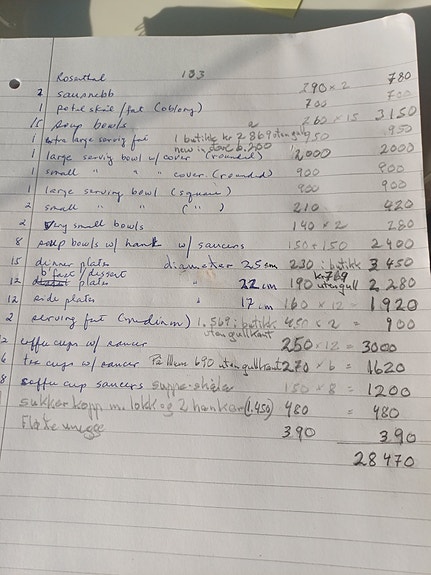 Rosenthal 133
2 sausnebb 290 x 2 780
1 potetskål/fat (oblong) 700 700
15 soup bowls 260 x 15 3150
1 extra large serving fat 1 butikk kr 2869 uten gull 950 950
new in store 6.200
1 large serving bowl w/ cover (rounded) 2000 2000
1 small " " " cover (rounded) 900 900
1 large serving bowl (square) 900 900
2 small " " ( " ) 210 420
2 very small bowls 140 x 2 280
8 soup bowls w/ hank w/ saucers 150 + 150 2400
15 dinner plates diameter 25 cm 230 i butikk 3450
b'fast/dessert kr 769
12 plates " 22 cm 190 uten gull 2280
12 side plates " 17 cm 160 x 12 = 1920
2 serving fat (medium) 1.569 i butikk 450 x 2 = 900
uten gullkant
2 coffee cups w/ saucer 250 x 12 = 3000
6 tea cups w/ saucer 690 uten gullkant 270 x 6 = 1620
8 coffee cup saucers suppe-skåler 150 x 8 = 1200
1 sukkerkopp m. lokk og 2 hanker (1.450) 480 = 480
Fløtemugge 390 390
28470